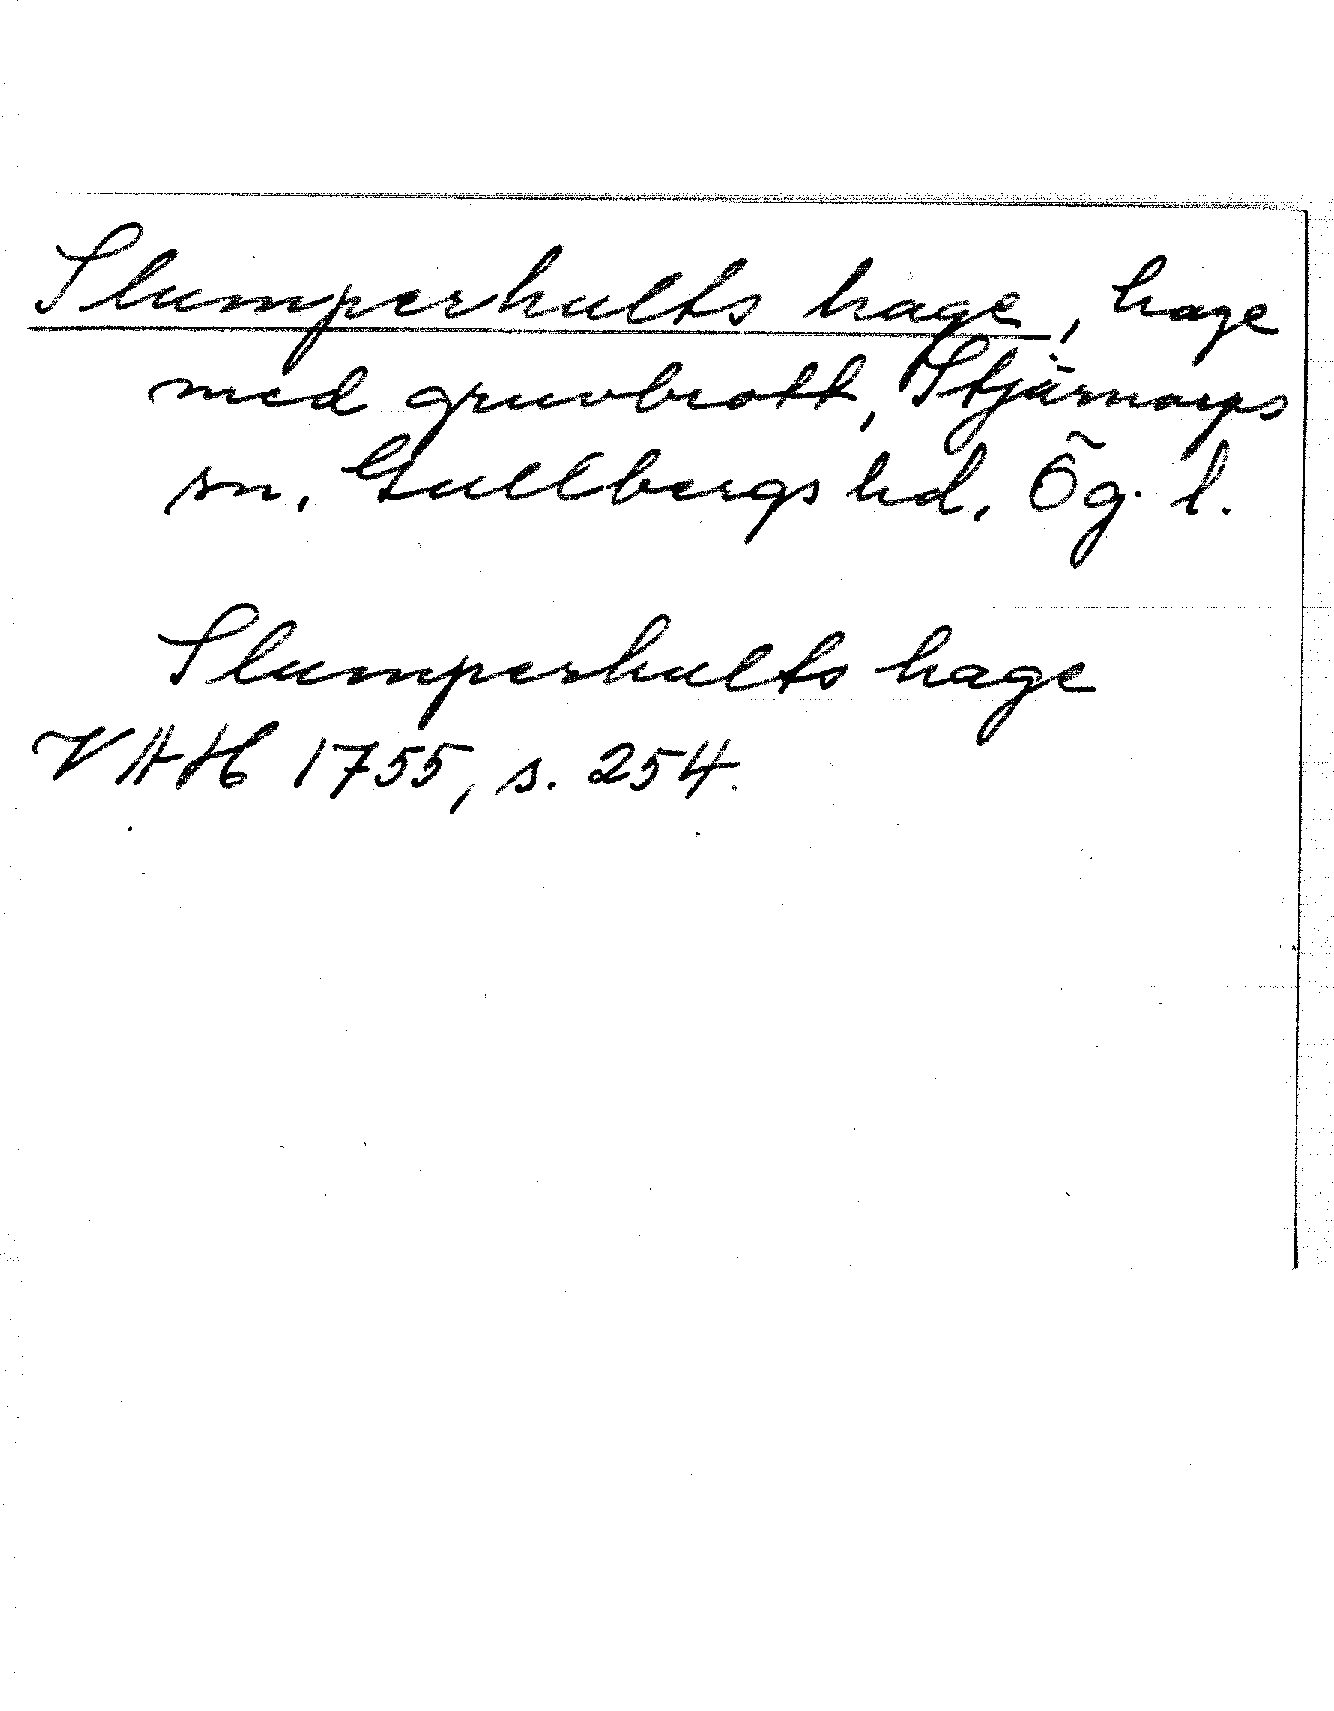 Slumperhults hage, hage
med gruvbrott, Stjärnorps
sn, Gullbergs hd, Ög. l.
Slumperhults hage
VAH 1755, s. 254.